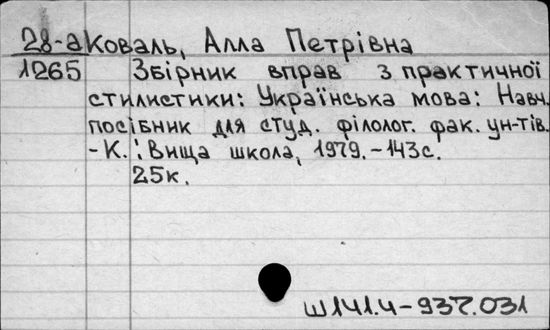 28-а Коваль, Алла Петрівна
1265 Збірник вправ з практичної
стилистики: Українська мова: Навч.
посібник для студ. філолог. фак. ун-тів.
-К.: Вища школа, 1979. - 143с.
25к.
ш141.4-937.031